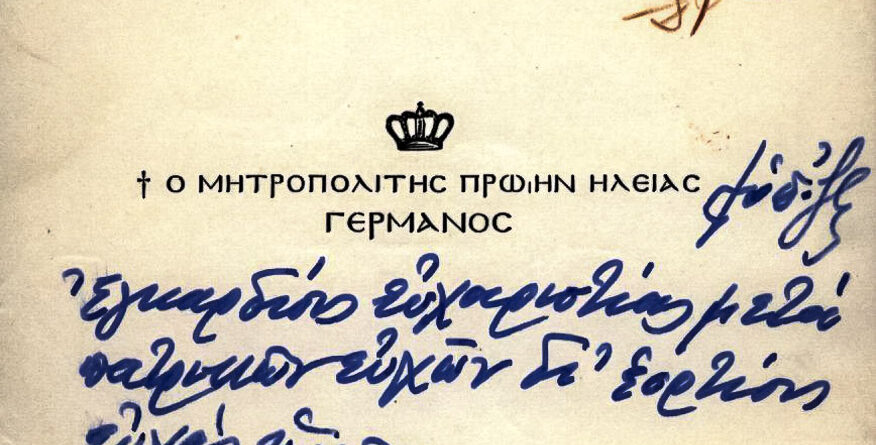 † Ο ΜΗΤΡΟΠΟΛΙΤΗΣ ΠΡΩΙΗΝ ΗΛΕΙΑΣ
ΓΕΡΜΑΝΟΣ
Ἐγκαρδίους εὐχαριστίας μετὰ
πατρικῶν εὐχῶν δι' ἑορτίους